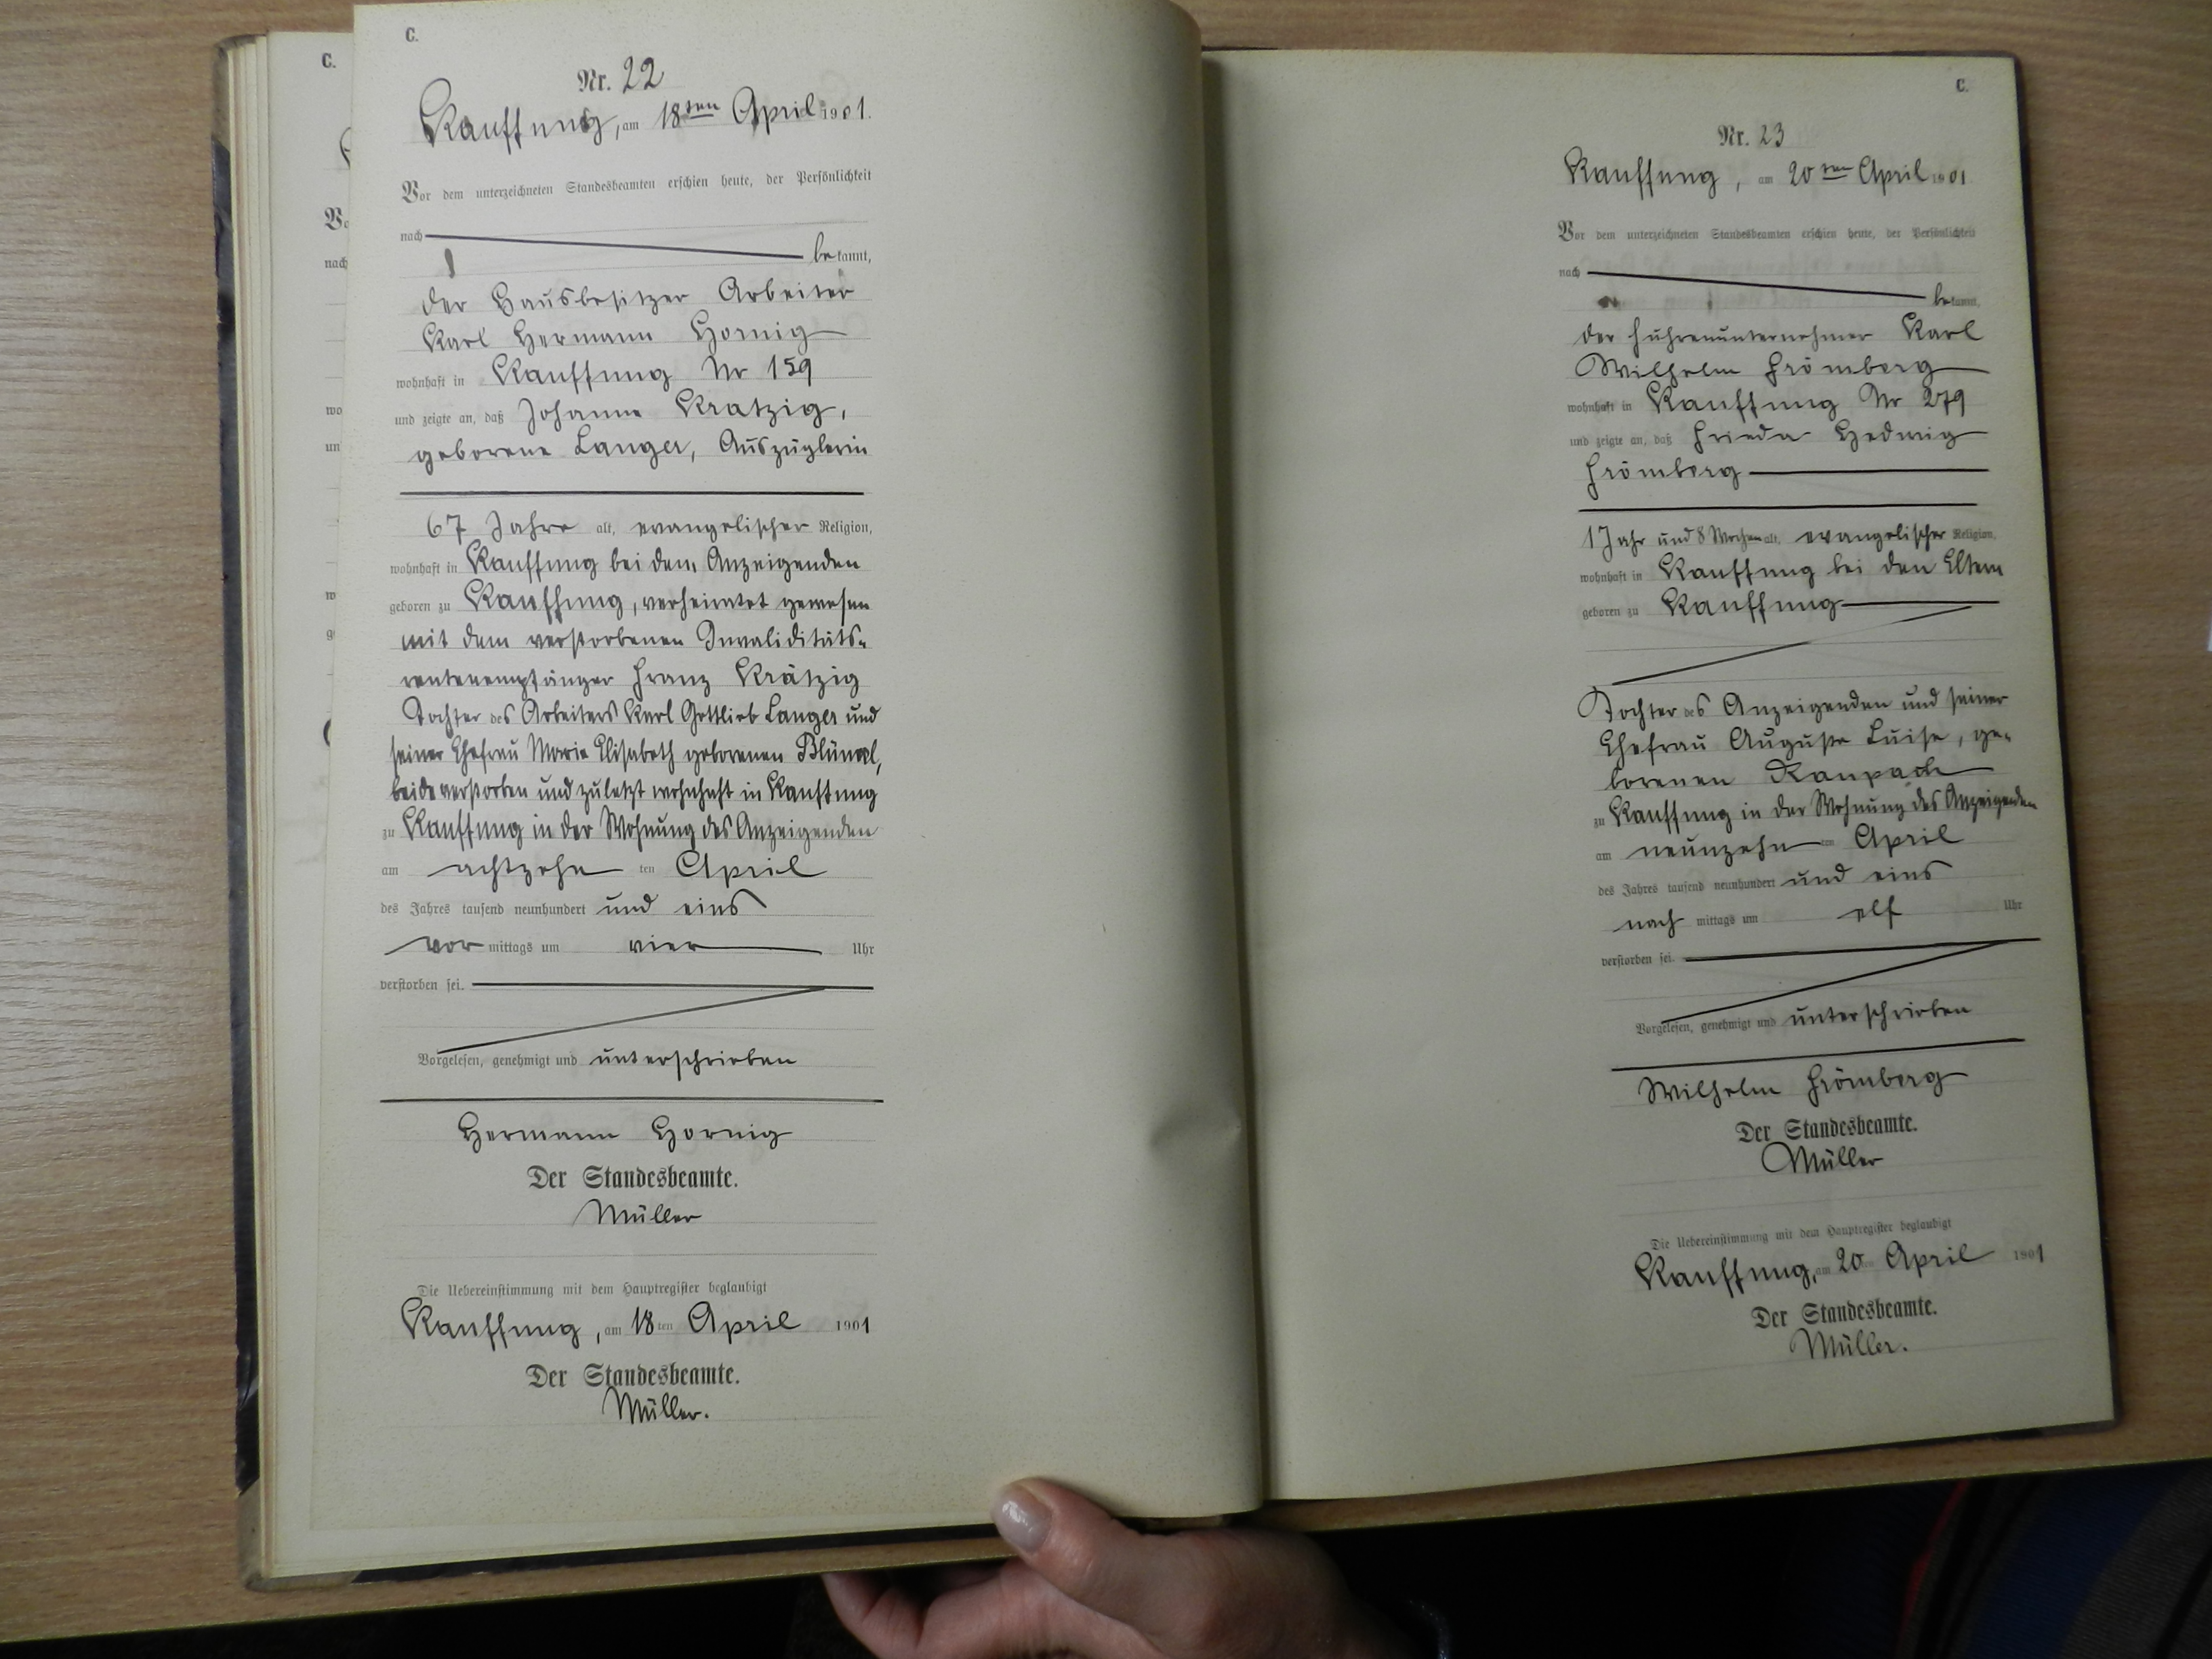 C.
Nr. 22
Kauffung, am 18ten April 1901.
Vor dem unterzeichneten Standesbeamten erschien heute, der Persönlichkeit
nach
bekannt,
der Hausbesitzer Arbeiter
Karl Hermann Hornig
wohnhaft in Kauffung Nr 159
und zeigte an, daß Johanne Kratzig,
geborene Langer, Auszüglerin
67 Jahre alt, evangelischer Religion,
wohnhaft in Kauffung bei dem Anzeigenden
geboren zu Kauffung, verheiratet gewesen
mit dem verstorbenen Invaliditäts-
rentenempfänger Franz Krätzig
Tochter des Arbeiters Karl Gottlieb Langer und
seiner Ehefrau Marie Elisabeth geborenen Blümel,
beide verstorben und zuletzt wohnhaft in Kauffung
zu Kauffung in der Wohnung des Anzeigenden
am achtzehnten April
des Jahres tausend neunhundert und eins
vormittags um vier Uhr
verstorben sei.
Vorgelesen, genehmigt und unterschrieben
Hermann Hornig
Der Standesbeamte.
Müller
Die Uebereinstimmung mit dem Hauptregister beglaubigt
Kauffung, am 18ten April 1901
Der Standesbeamte.
Müller.
C.
Nr. 23
Kauffung, am 20ten April 1901
Vor dem unterzeichneten Standesbeamten erschien heute, der Persönlichkeit
nach
bekannt,
der Fuhrenunternehmer Karl
Wilhelm Frömberg
wohnhaft in Kauffung Nr 279
und zeigte an, daß Frieda Hedwig
Frömberg
1 Jahr und 8 Wochen alt, evangelischer Religion,
wohnhaft in Kauffung bei den Eltern
geboren zu Kauffung
Tochter des Anzeigenden und seiner
Ehefrau Auguste Luise, ge-
borenen Raupach
zu Kauffung in der Wohnung des Anzeigenden
am neunzehnten April
des Jahres tausend neunhundert und eins
nachmittags um elf Uhr
verstorben sei.
Vorgelesen, genehmigt und unterschrieben
Wilhelm Frömberg
Der Standesbeamte.
Müller
Die Uebereinstimmung mit dem Hauptregister beglaubigt
Kauffung, am 20ten April 1901
Der Standesbeamte.
Müller.